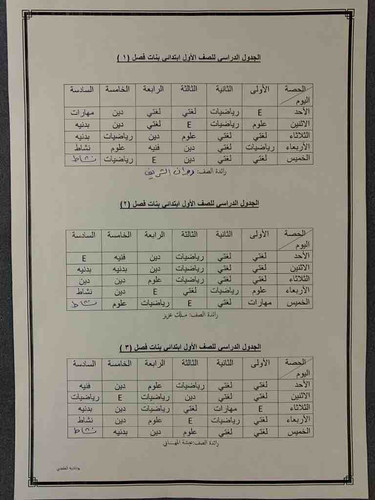 الجدول الدراسي للصف الأول ابتدائي بنات فصل ( ١ )
الحصة اليوم الأولى الثانية الثالثة الرابعة الخامسة السادسة
الأحد E رياضيات لغتي لغتي دين مهارات
الاثنين علوم رياضيات E لغتي دين بدنيه
الثلاثاء لغتي لغتي علوم دين رياضيات بدنيه
الأربعاء رياضيات لغتي E فنيه علوم نشاط
الخميس لغتي لغتي دين E رياضيات نشاط
رائدة الصف:
الجدول الدراسي للصف الأول ابتدائي بنات فصل ( ٢ )
الحصة اليوم الأولى الثانية الثالثة الرابعة الخامسة السادسة
الأحد لغتي لغتي رياضيات دين فنيه E
الاثنين لغتي لغتي رياضيات دين بدنيه بدنيه
الثلاثاء لغتي لغتي رياضيات علوم دين دين
الأربعاء علوم رياضيات لغتي E دين نشاط
الخميس مهارات لغتي E رياضيات علوم نشاط
رائدة الصف: ملك عزيز
الجدول الدراسي للصف الأول ابتدائي بنات فصل ( ٣ )
الحصة اليوم الأولى الثانية الثالثة الرابعة الخامسة السادسة
الأحد لغتي لغتي رياضيات علوم دين فنيه
الاثنين لغتي لغتي دين رياضيات E رياضيات
الثلاثاء E مهارات لغتي رياضيات دين بدنيه
الأربعاء لغتي لغتي رياضيات E دين نشاط
الخميس E لغتي علوم دين بدنيه نشاط
رائدة الصف: